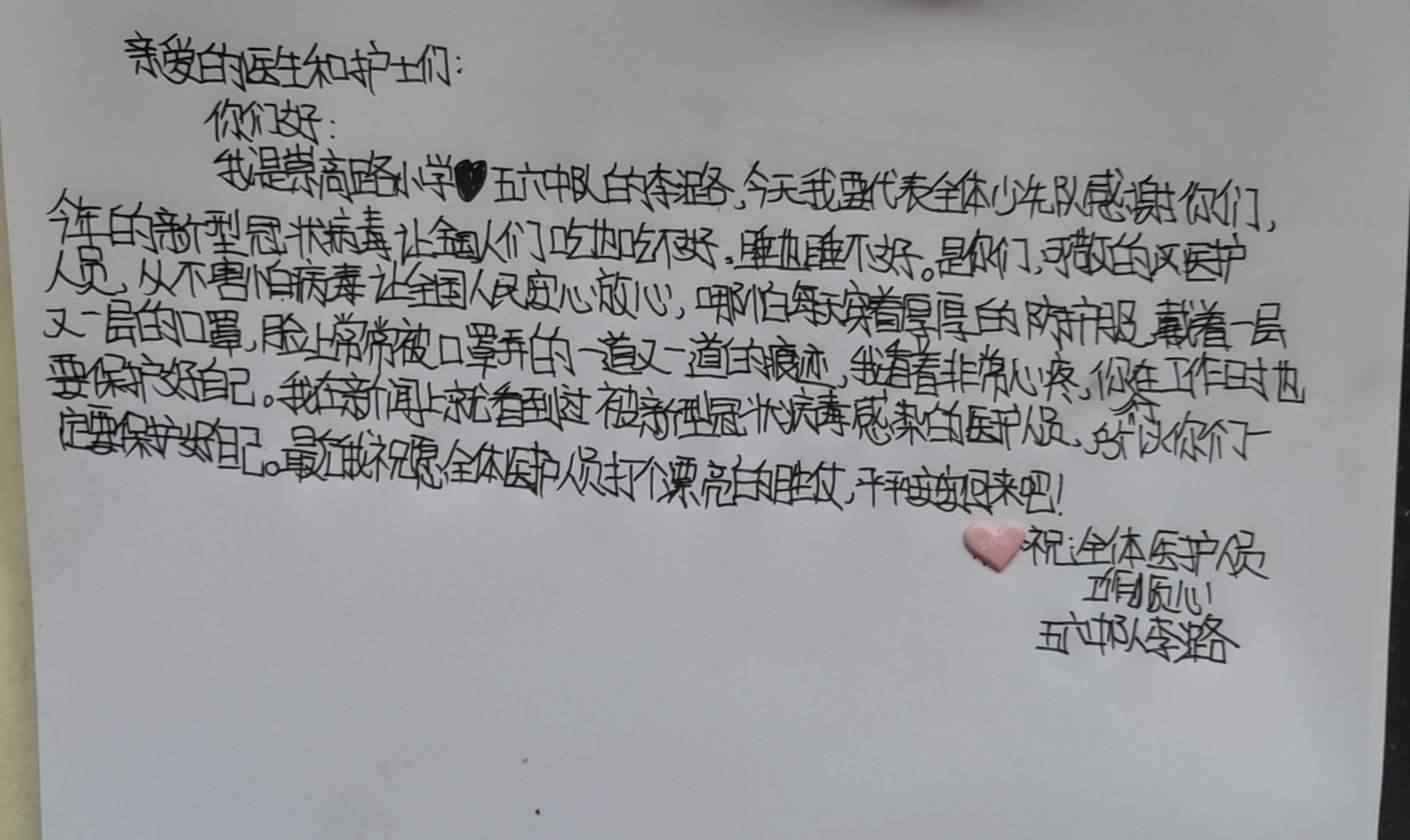 亲爱的医生和护士们:
你们好:
我是崇高路小学五六中队的李潞,今天我要代表全体少先队感谢你们,
今年的新型冠状病毒让全国人们吃也吃不好。睡也睡不好。是你们,可敬的医护
人员,从不害怕病毒让全国人民安心放心,哪怕每天穿着厚厚的防护服,戴着一层
又一层的口罩,脸上常常被口罩弄的一道又一道的痕迹,我看着非常心疼,你们在工作时也
要保护好自己。我在新闻上就看到过被新型冠状病毒感染的医护人员,所以你们一
定要保护好自己。最后我祝愿全体医护人员打个漂亮的胜仗,平平安安回来吧!
祝:全体医护人员
工作顺心!
五六中队李潞